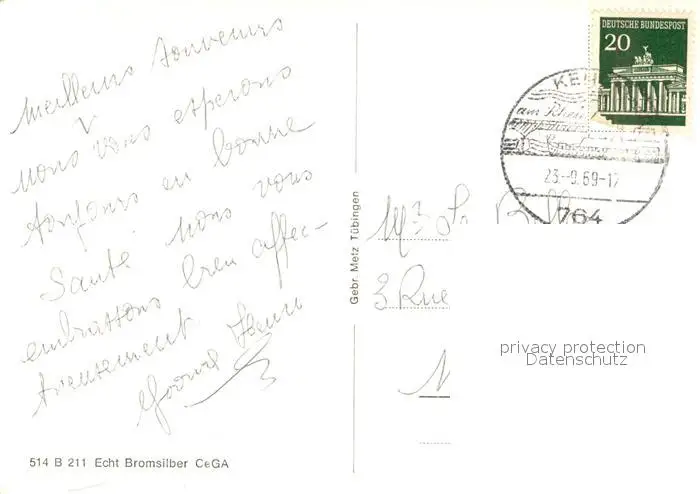 Meilleurs souvenirs
nous vous espérons
toujours en bonne
santé. Nous vous
embrassons bien affec-
tueusement.
514 B 211 Echt Bromsilber CeGA
Gebr. Metz Tübingen
DEUTSCHE BUNDESPOST
20
KE
am Rhein
23.-9.69-17
764
3 Rue
privacy protection
Datenschutz